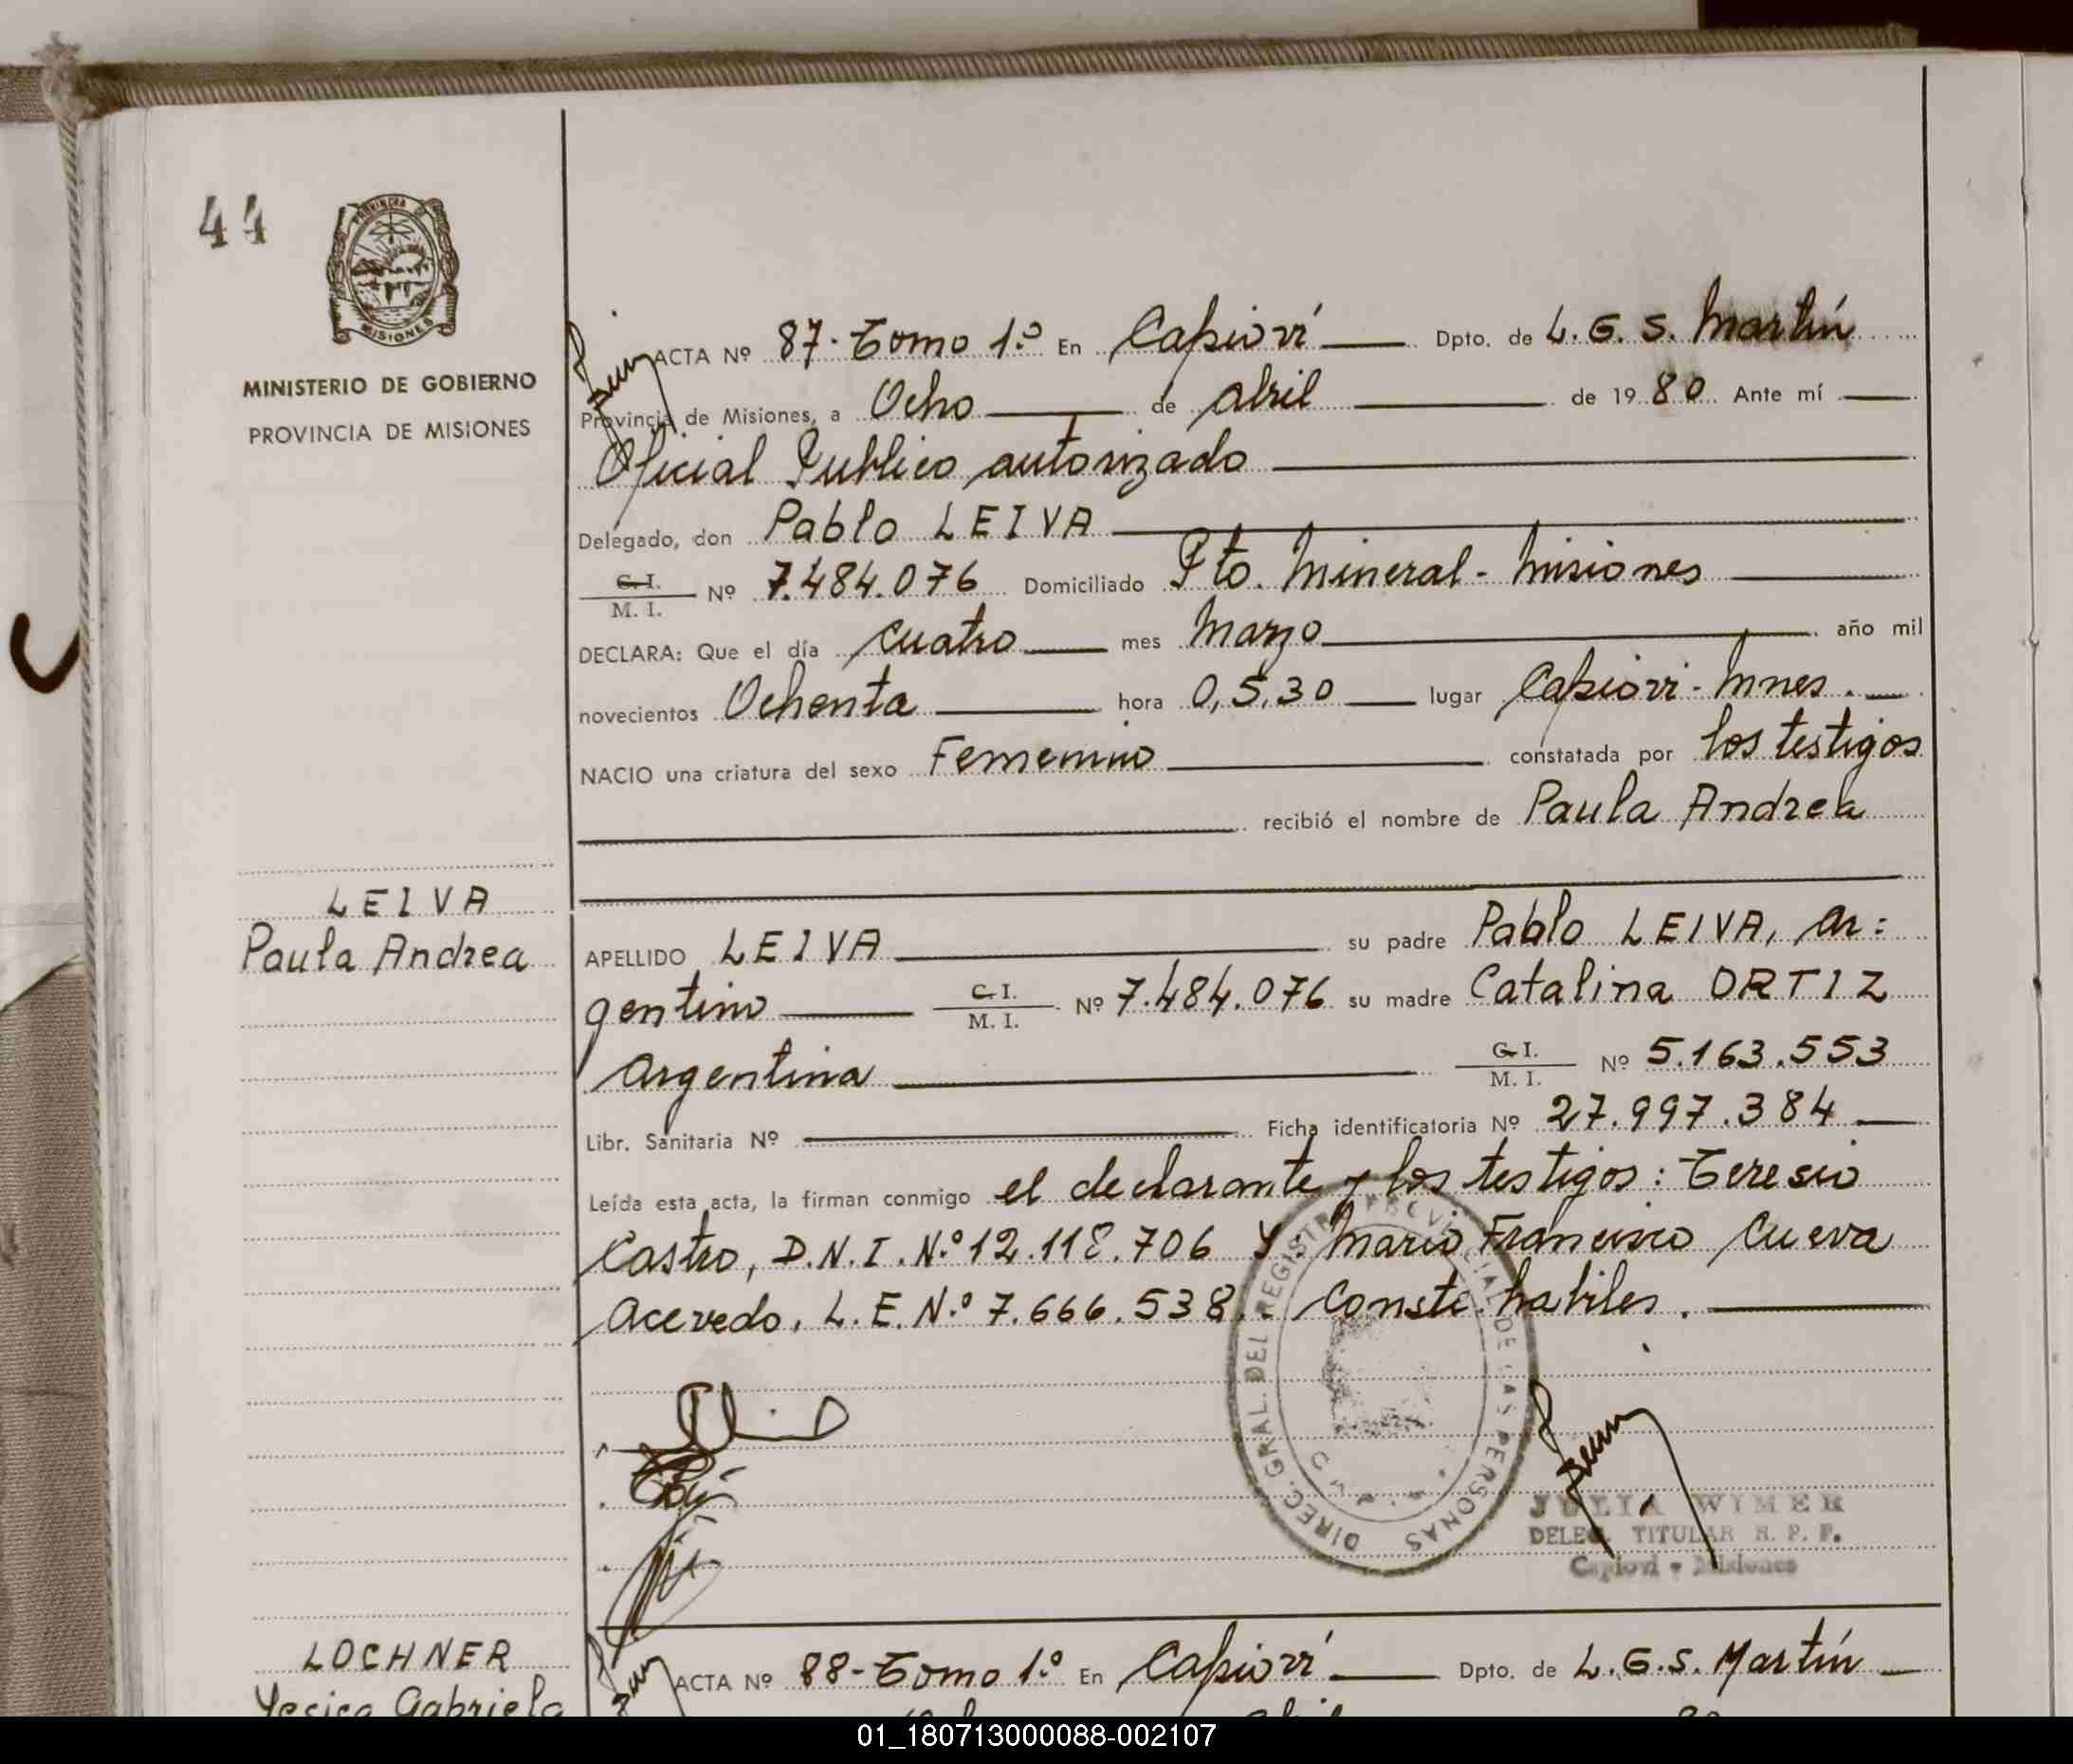 44
PROVINCIA DE
MISIONES
MINISTERIO DE GOBIERNO
PROVINCIA DE MISIONES
ACTA Nº 87-Tomo 1º En Capioví Dpto. de L. G. S. Martín
Provincia de Misiones, a Ocho de abril de 1980 Ante mí
Oficial Publico autorizado
Delegado, don Pablo LEIVA
C. I.
M. I. Nº 7.484.076 Domiciliado Pto. Mineral - Misiones
DECLARA: Que el día cuatro mes Marzo año mil
novecientos Ochenta hora 0,5,30 lugar Capiovi - Mnes.
NACIO una criatura del sexo Femenino constatada por los testigos
recibió el nombre de Paula Andrea
LEIVA
Paula Andrea
APELLIDO LEIVA su padre Pablo LEIVA, ar:
gentino C. I. M. I. Nº 7.484.076 su madre Catalina ORTIZ
argentina C. I. M. I. Nº 5.163.553
Libr. Sanitaria Nº Ficha identificatoria Nº 27.997.384
Leída esta acta, la firman conmigo el declarante y los testigos: Teresio
Castro, D.N.I. N.º 12.118.706 y: Mario Francisco Cueva
Acevedo, L. E. N.º 7.666.538. Conste habiles.
DIREC. GRAL. DEL REGISTRO PROVINCIAL DE LAS PERSONAS
JULIA WIMER
DELEG. TITULAR R. P. P.
Capioví - Misiones
LOCHNER
Yesica Gabriela
ACTA Nº 88-Tomo 1º En Capioví Dpto. de L.G.S. Martín
01_180713000088-002107